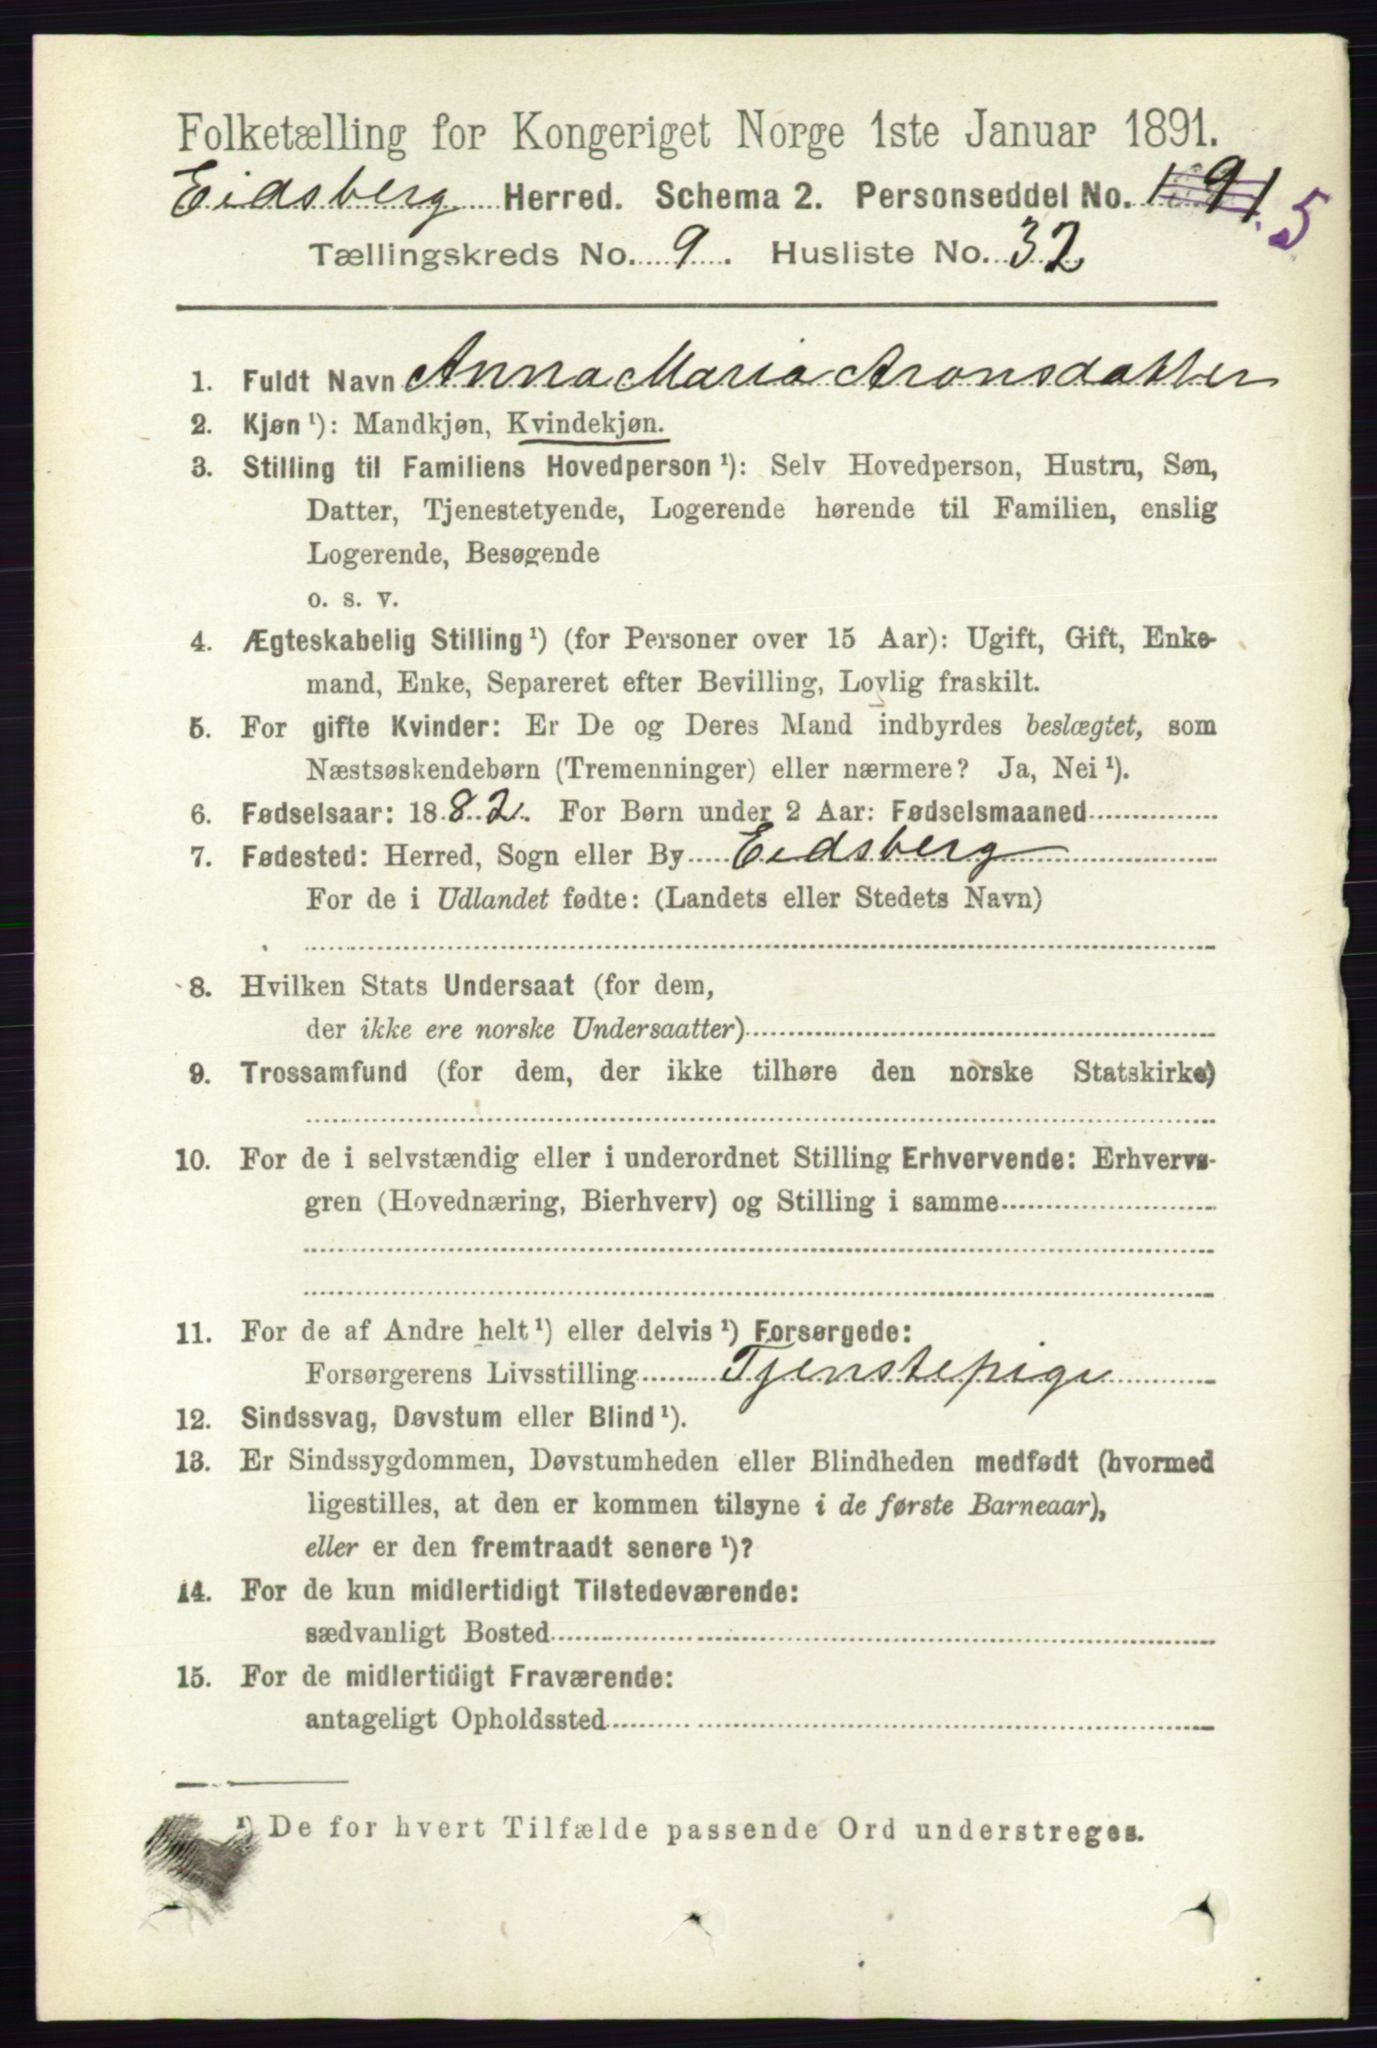 Folketælling for Kongeriget Norge 1ste Januar 1891.
Eidsberg Herred. Schema 2. Personseddel No. 191. 5
Tællingskreds No. 9. Husliste No. 32
1. Fuldt Navn Anna Maria Aronsdatter
2. Kjøn ¹): Mandkjøn, Kvindekjøn.
3. Stilling til Familiens Hovedperson ¹): Selv Hovedperson, Hustru, Søn,
Datter, Tjenestetyende, Logerende hørende til Familien, enslig
Logerende, Besøgende
o. s. v.
4. Ægteskabelig Stilling ¹) (for Personer over 15 Aar): Ugift, Gift, Enke-
mand, Enke, Separeret efter Bevilling, Lovlig fraskilt.
5. For gifte Kvinder: Er De og Deres Mand indbyrdes beslægtet, som
Næstsøskendebørn (Tremenninger) eller nærmere? Ja, Nei ¹).
6. Fødselsaar: 1882. For Børn under 2 Aar: Fødselsmaaned
7. Fødested: Herred, Sogn eller By Eidsberg
For de i Udlandet fødte: (Landets eller Stedets Navn)
8. Hvilken Stats Undersaat (for dem,
der ikke ere norske Undersaatter)
9. Trossamfund (for dem, der ikke tilhøre den norske Statskirke)
10. For de i selvstændig eller i underordnet Stilling Erhvervende: Erhvervs-
gren (Hovednæring, Bierhverv) og Stilling i samme
11. For de af Andre helt ¹) eller delvis ¹) Forsørgede:
Forsørgerens Livsstilling Tjenstepige
12. Sindssvag, Døvstum eller Blind ¹).
13. Er Sindssygdommen, Døvstumheden eller Blindheden medfødt (hvormed
ligestilles, at den er kommen tilsyne i de første Barneaar),
eller er den fremtraadt senere ¹)?
14. For de kun midlertidigt Tilstedeværende:
sædvanligt Bosted
15. For de midlertidigt Fraværende:
antageligt Opholdssted
¹) De for hvert Tilfælde passende Ord understreges.